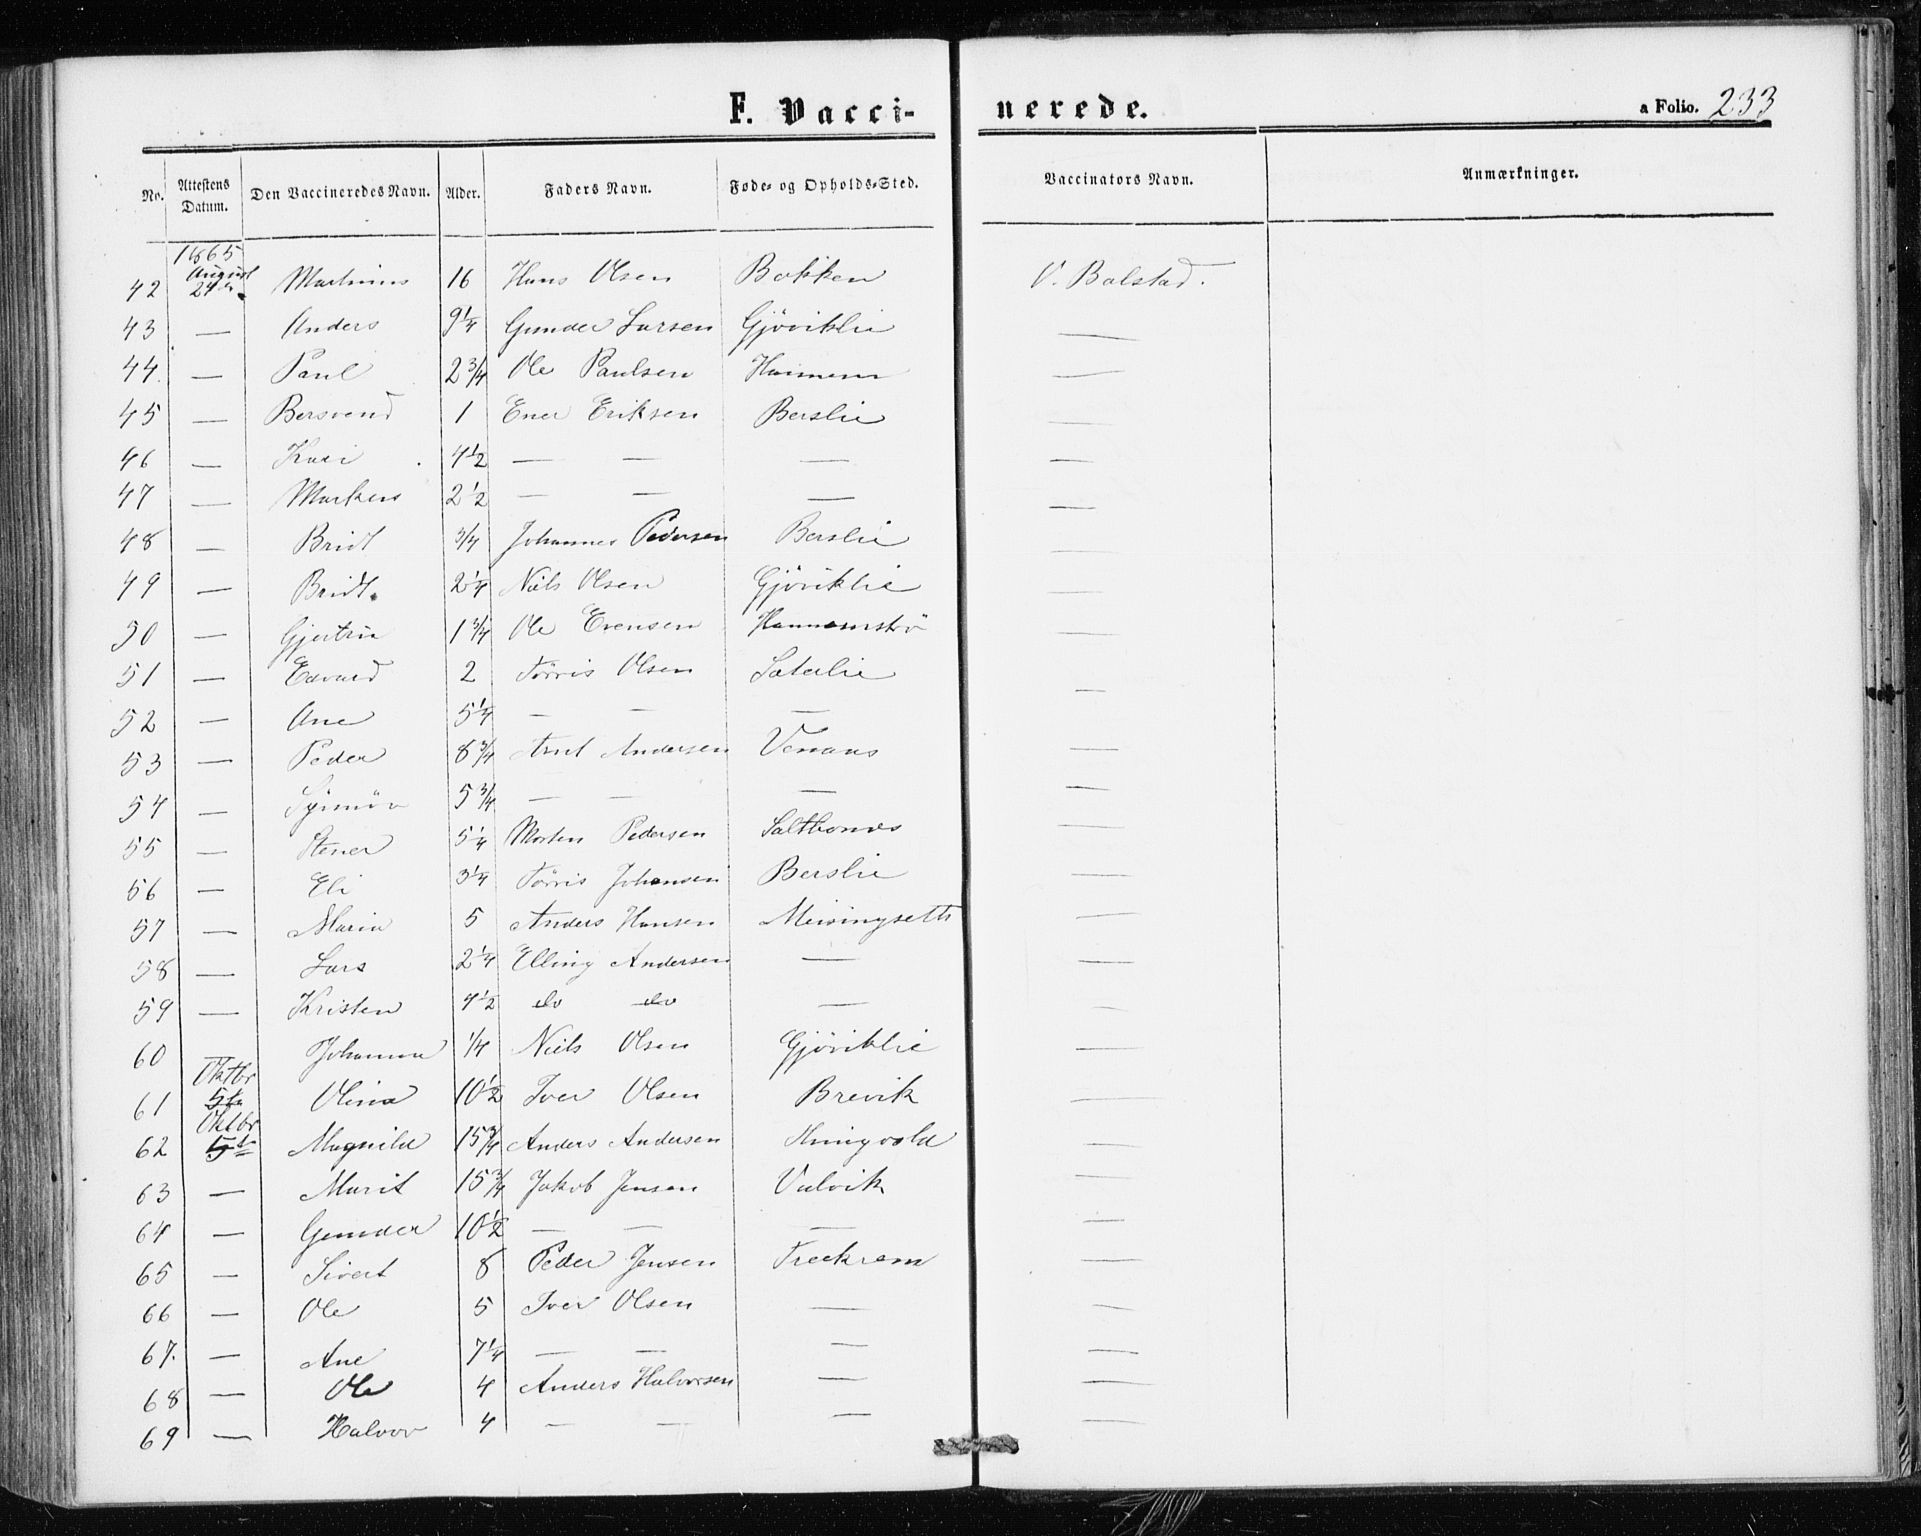 F. Vacci-nerede.
a Folio. 233
No. Attestens Datum. Den Vaccineredes Navn. Alder. Faders Navn. Føde- og Opholds-Sted. Vaccinators Navn. Anmærkninger.
1865
42 August 24de Martinus 16 Hans Olsen Bakken V. Balstad.
43 — Anders 9 1/4 Gunder Larsen Gjöviklie —
44. — Paul 2 3/4 Ole Paulsen —
45 — Bersvend 1 Ener Eriksen Berslie —
46 — Kari 4 1/2 — — — —
47 — Markus 2 1/2 — — — —
48 — Bridt 3/4 Johannes Pedersen Berslie —
49 — Bridt 2 1/4 Niels Olsen Gjöviklie —
50 — Gjertru 1 3/4 Ole Evensen —
51 — Edvard 2 Törris Olsen Säterlie —
52 — Ane 5 1/4 — — —
53 — Peder 8 3/4 Arnt Andersen —
54 — Synnöv 5 3/4 — — — —
55 — Stener 5 1/4 Morten Pedersen Saltbones —
56 — Eli 3 1/4 Törris Johansen Berslie —
57 — Maria 5 Anders Hansen Meisingseth —
58 — Lars 2 1/4 Elling Andersen — —
59 — Kristen 4 1/2 do do — —
60 Johanna 1/4 Niels Olsen Gjöviklie —
61 Oktbr 5te Olina 10 1/2 Iver Olsen Brevik —
62 Oktbr 5te Magnild 15 3/4 Anders Andersen —
63 — Marit 15 3/4 Jakob Jensen Valvik —
64 — Gunder 10 1/2 — — — —
65 — Sivert 8 Peder Jensen Treekrem —
66 — Ole 5 Iver Olsen — —
67. — Ane 7 1/4 — — — —
68 — Ole 4 Anders Halvorsen — —
69 — Halvor 4 — — — —